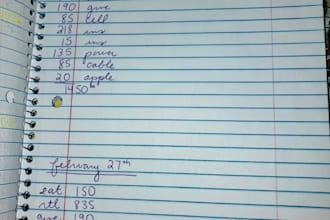 190 give
85 cell
218 ins
15 ins
135 power
85 cable
20 apple
1450
february 27th
eat 150
rtl 835
give 190